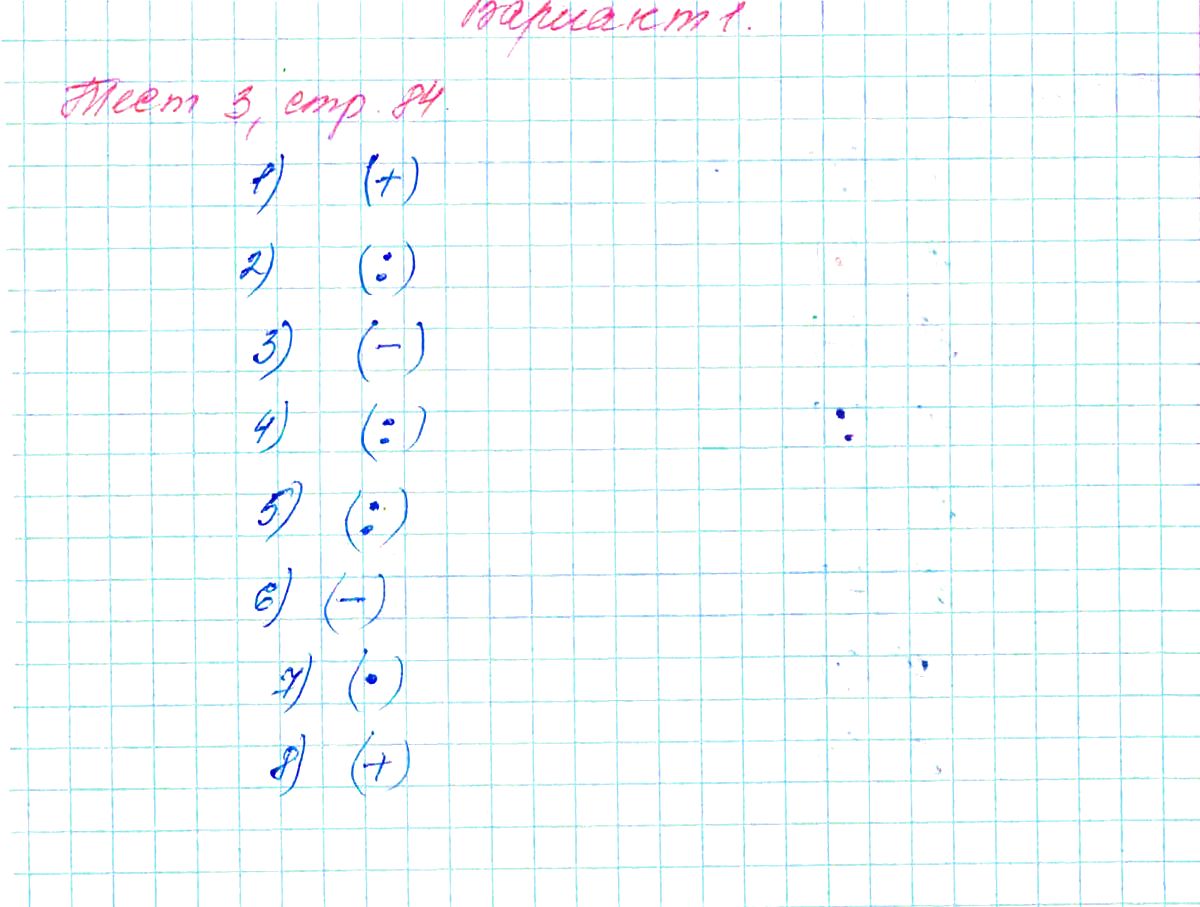 Вариант 1.
Тест 3, стр. 84
1) (+)
2) (:)
3) (-)
4) (:)
5) (:)
6) (-)
7) (•)
8) (+)